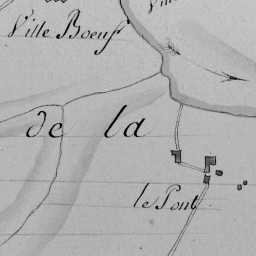 Ville Boeuf
de la
le Pont